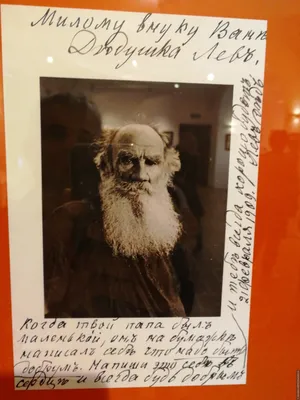 Милому внуку Ванѣ
Дѣдушка Левъ.
Когда твой папа былъ
маленькой, онъ на бумажкѣ
написалъ себѣ что надо быть
добрымъ. Напиши это себѣ въ
сердцѣ и всегда будь добрымъ
и тебѣ всегда хорошо будетъ.
21 февраля 1909.